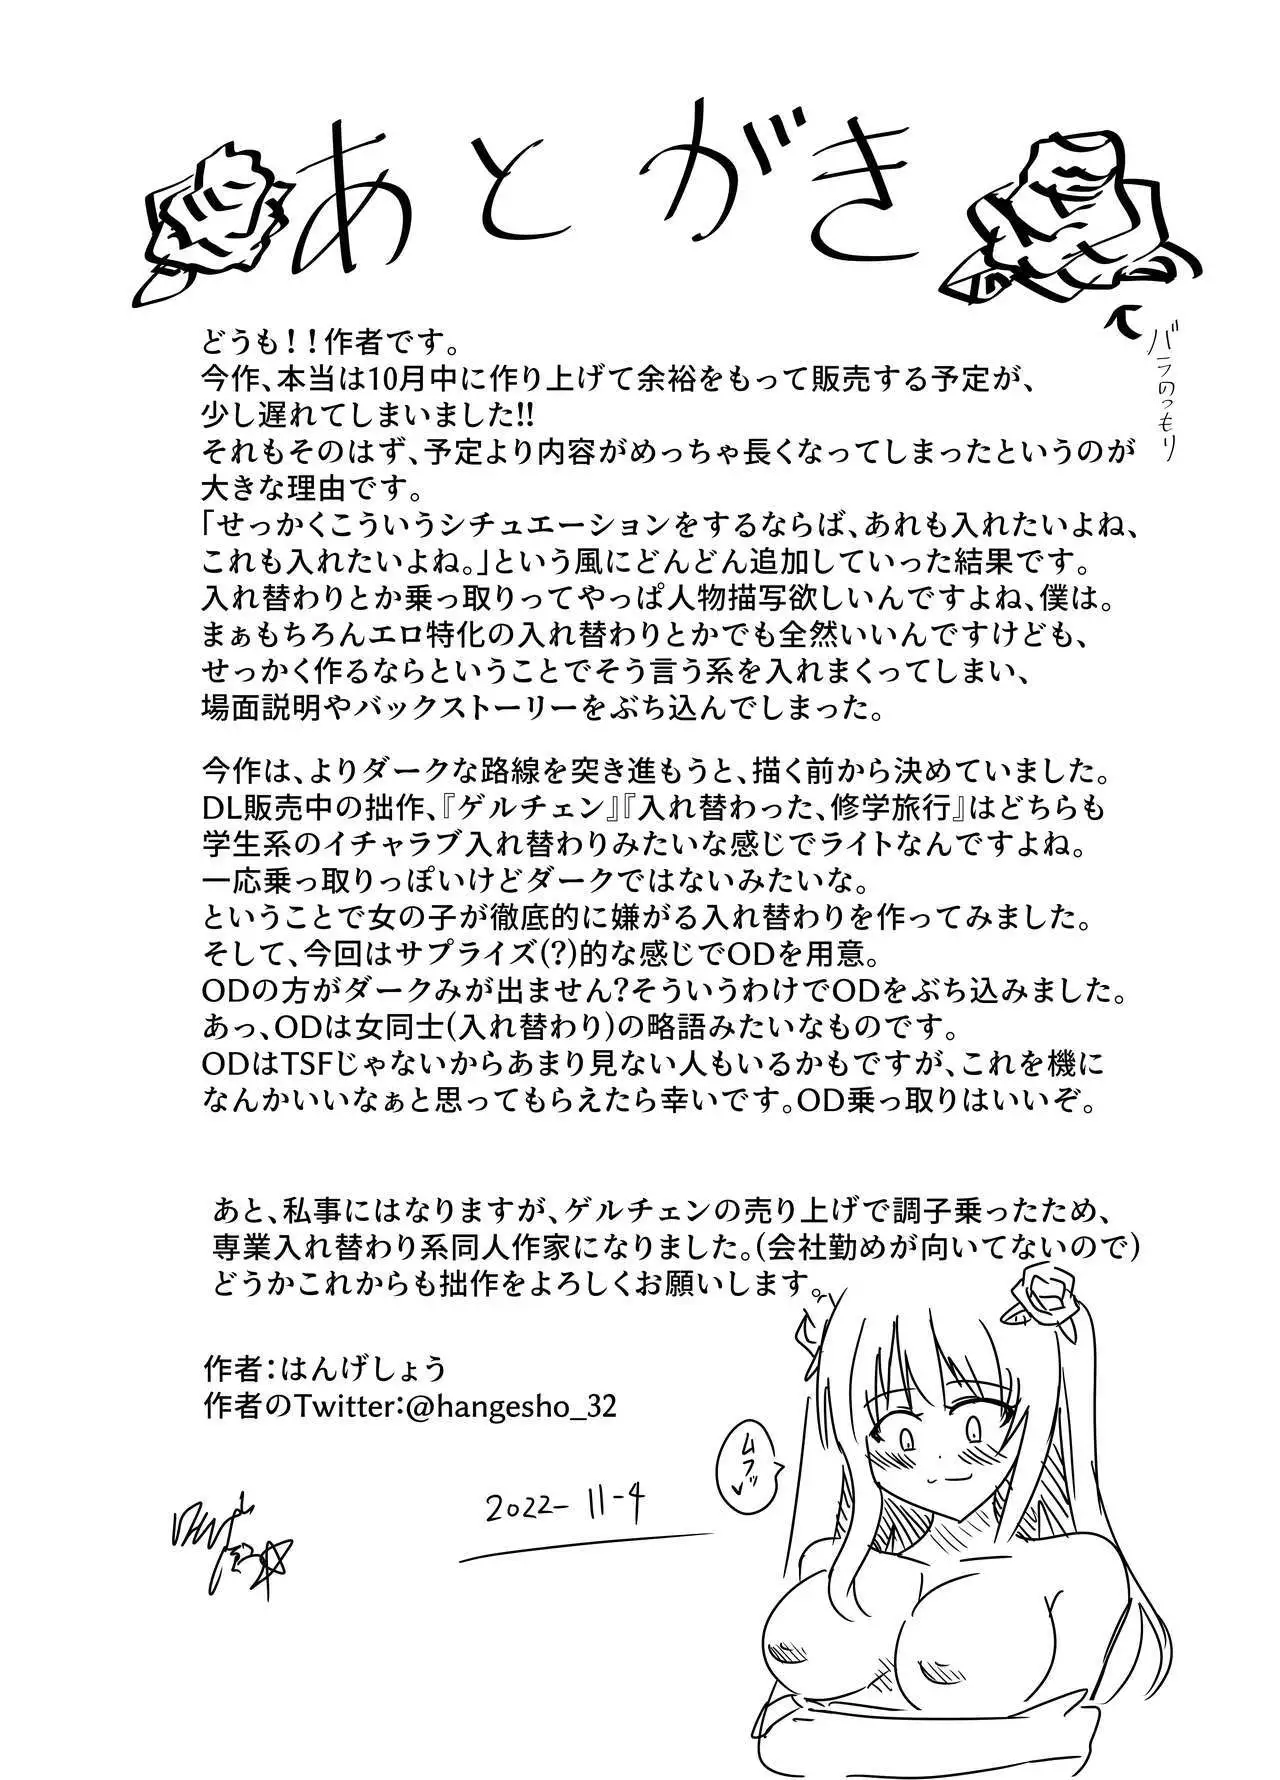 あとがき
バラのつもり
どうも！！作者です。
今作、本当は10月中に作り上げて余裕をもって販売する予定が、
少し遅れてしまいました!!
それもそのはず、予定より内容がめっちゃ長くなってしまったというのが
大きな理由です。
「せっかくこういうシチュエーションをするならば、あれも入れたいよね、
これも入れたいよね。」という風にどんどん追加していった結果です。
入れ替わりとか乗っ取りってやっぱ人物描写欲しいんですよね、僕は。
まぁもちろんエロ特化の入れ替わりとかでも全然いいんですけども、
せっかく作るならということでそう言う系を入れまくってしまい、
場面説明やバックストーリーをぶち込んでしまった。
今作は、よりダークな路線を突き進もうと、描く前から決めていました。
DL販売中の拙作、『ゲルチェン』『入れ替わった、修学旅行』はどちらも
学生系のイチャラブ入れ替わりみたいな感じでライトなんですよね。
一応乗っ取りっぽいけどダークではないみたいな。
ということで女の子が徹底的に嫌がる入れ替わりを作ってみました。
そして、今回はサプライズ(?)的な感じでODを用意。
ODの方がダークみが出ません?そういうわけでODをぶち込みました。
あっ、ODは女同士(入れ替わり)の略語みたいなものです。
ODはTSFじゃないからあまり見ない人もいるかもですが、これを機に
なんかいいなぁと思ってもらえたら幸いです。OD乗っ取りはいいぞ。
あと、私事にはなりますが、ゲルチェンの売り上げで調子乗ったため、
専業入れ替わり系同人作家になりました。(会社勤めが向いてないので)
どうかこれからも拙作をよろしくお願いします。
作者：はんげしょう
作者のTwitter:@hangesho_32
ムフッ
2022-11-4